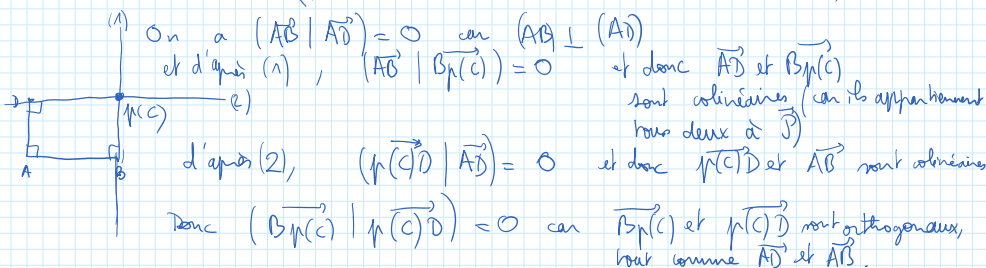 (1)
On a (AB | AD) = 0 car (AB) ⊥ (AD)
et d'après (1), (AB | Bp(C)) = 0 et donc AD et Bp(C)
sont colinéaires (car ils appartiennent
tous deux à P)
D p(C) (2)
A B
d'après (2), (p(C)D | AD) = 0 et donc p(C)D et AB sont colinéaires
Donc (Bp(C) | p(C)D) = 0 car Bp(C) et p(C)D sont orthogonaux,
tout comme AD et AB.